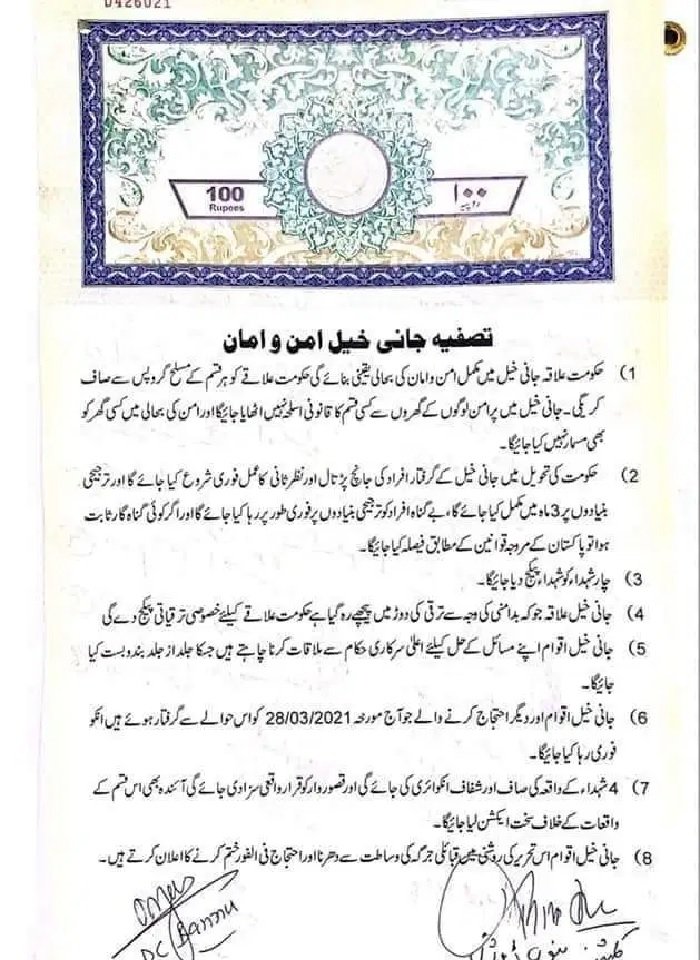 D426021
100
Rupees
۱۰۰
روپیہ
تصفیہ جانی خیل امن و امان
1) حکومت علاقہ جانی خیل میں مکمل امن و امان کی بحالی یقینی بنائے گی حکومت علاقے کو ہر قسم کے مسلح گروپس سے صاف
کریگی۔ جانی خیل میں پرامن لوگوں کے گھروں سے کسی قسم کا قانونی اسلحہ نہیں اٹھایا جائیگا اور امن کی بحالی میں کسی گھر کو
بھی مسمار نہیں کیا جائیگا۔
2) حکومت کی تحویل میں جانی خیل کے گرفتار افراد کی جانچ پڑتال اور نظر ثانی کا عمل فوری شروع کیا جائے گا اور ترجیحی
بنیادوں پر 3 ماہ میں مکمل کیا جائے گا، بے گناہ افراد کو ترجیحی بنیادوں پر فوری طور پر رہا کیا جائے گا اور اگر کوئی گناہ گار ثابت
ہوا تو پاکستان کے مروجہ قوانین کے مطابق فیصلہ کیا جائیگا۔
3) چار شہداء کو شہداء پیکج دیا جائیگا۔
4) جانی خیل علاقہ جو کہ بدامنی کی وجہ سے ترقی کی دوڑ میں پیچھے رہ گیا ہے حکومت علاقے کیلئے خصوصی ترقیاتی پیکج دے گی
5) جانی خیل اقوام اپنے مسائل کے حل کیلئے اعلیٰ سرکاری حکام سے ملاقات کرنا چاہتے ہیں جسکا جلد از جلد بندوبست کیا
جائیگا۔
6) جانی خیل اقوام اور دیگر احتجاج کرنے والے جو آج مورخہ 28/03/2021 کو اس حوالے سے گرفتار ہوئے ہیں انکو
فوری رہا کیا جائیگا۔
7) 4 شہداء کے واقعہ کی صاف اور شفاف انکوائری کی جائے گی اور قصوروار کو قرار واقعی سزا دی جائے گی آئندہ بھی اس قسم کے
واقعات کے خلاف سخت ایکشن لیا جائیگا۔
8) جانی خیل اقوام اس تحریر کی روشنی میں قبائلی جرگہ کی وساطت سے دھرنا اور احتجاج فی الفور ختم کرنے کا اعلان کرتے ہیں۔
DC Bannu
کمشنر بنوں ڈویژن